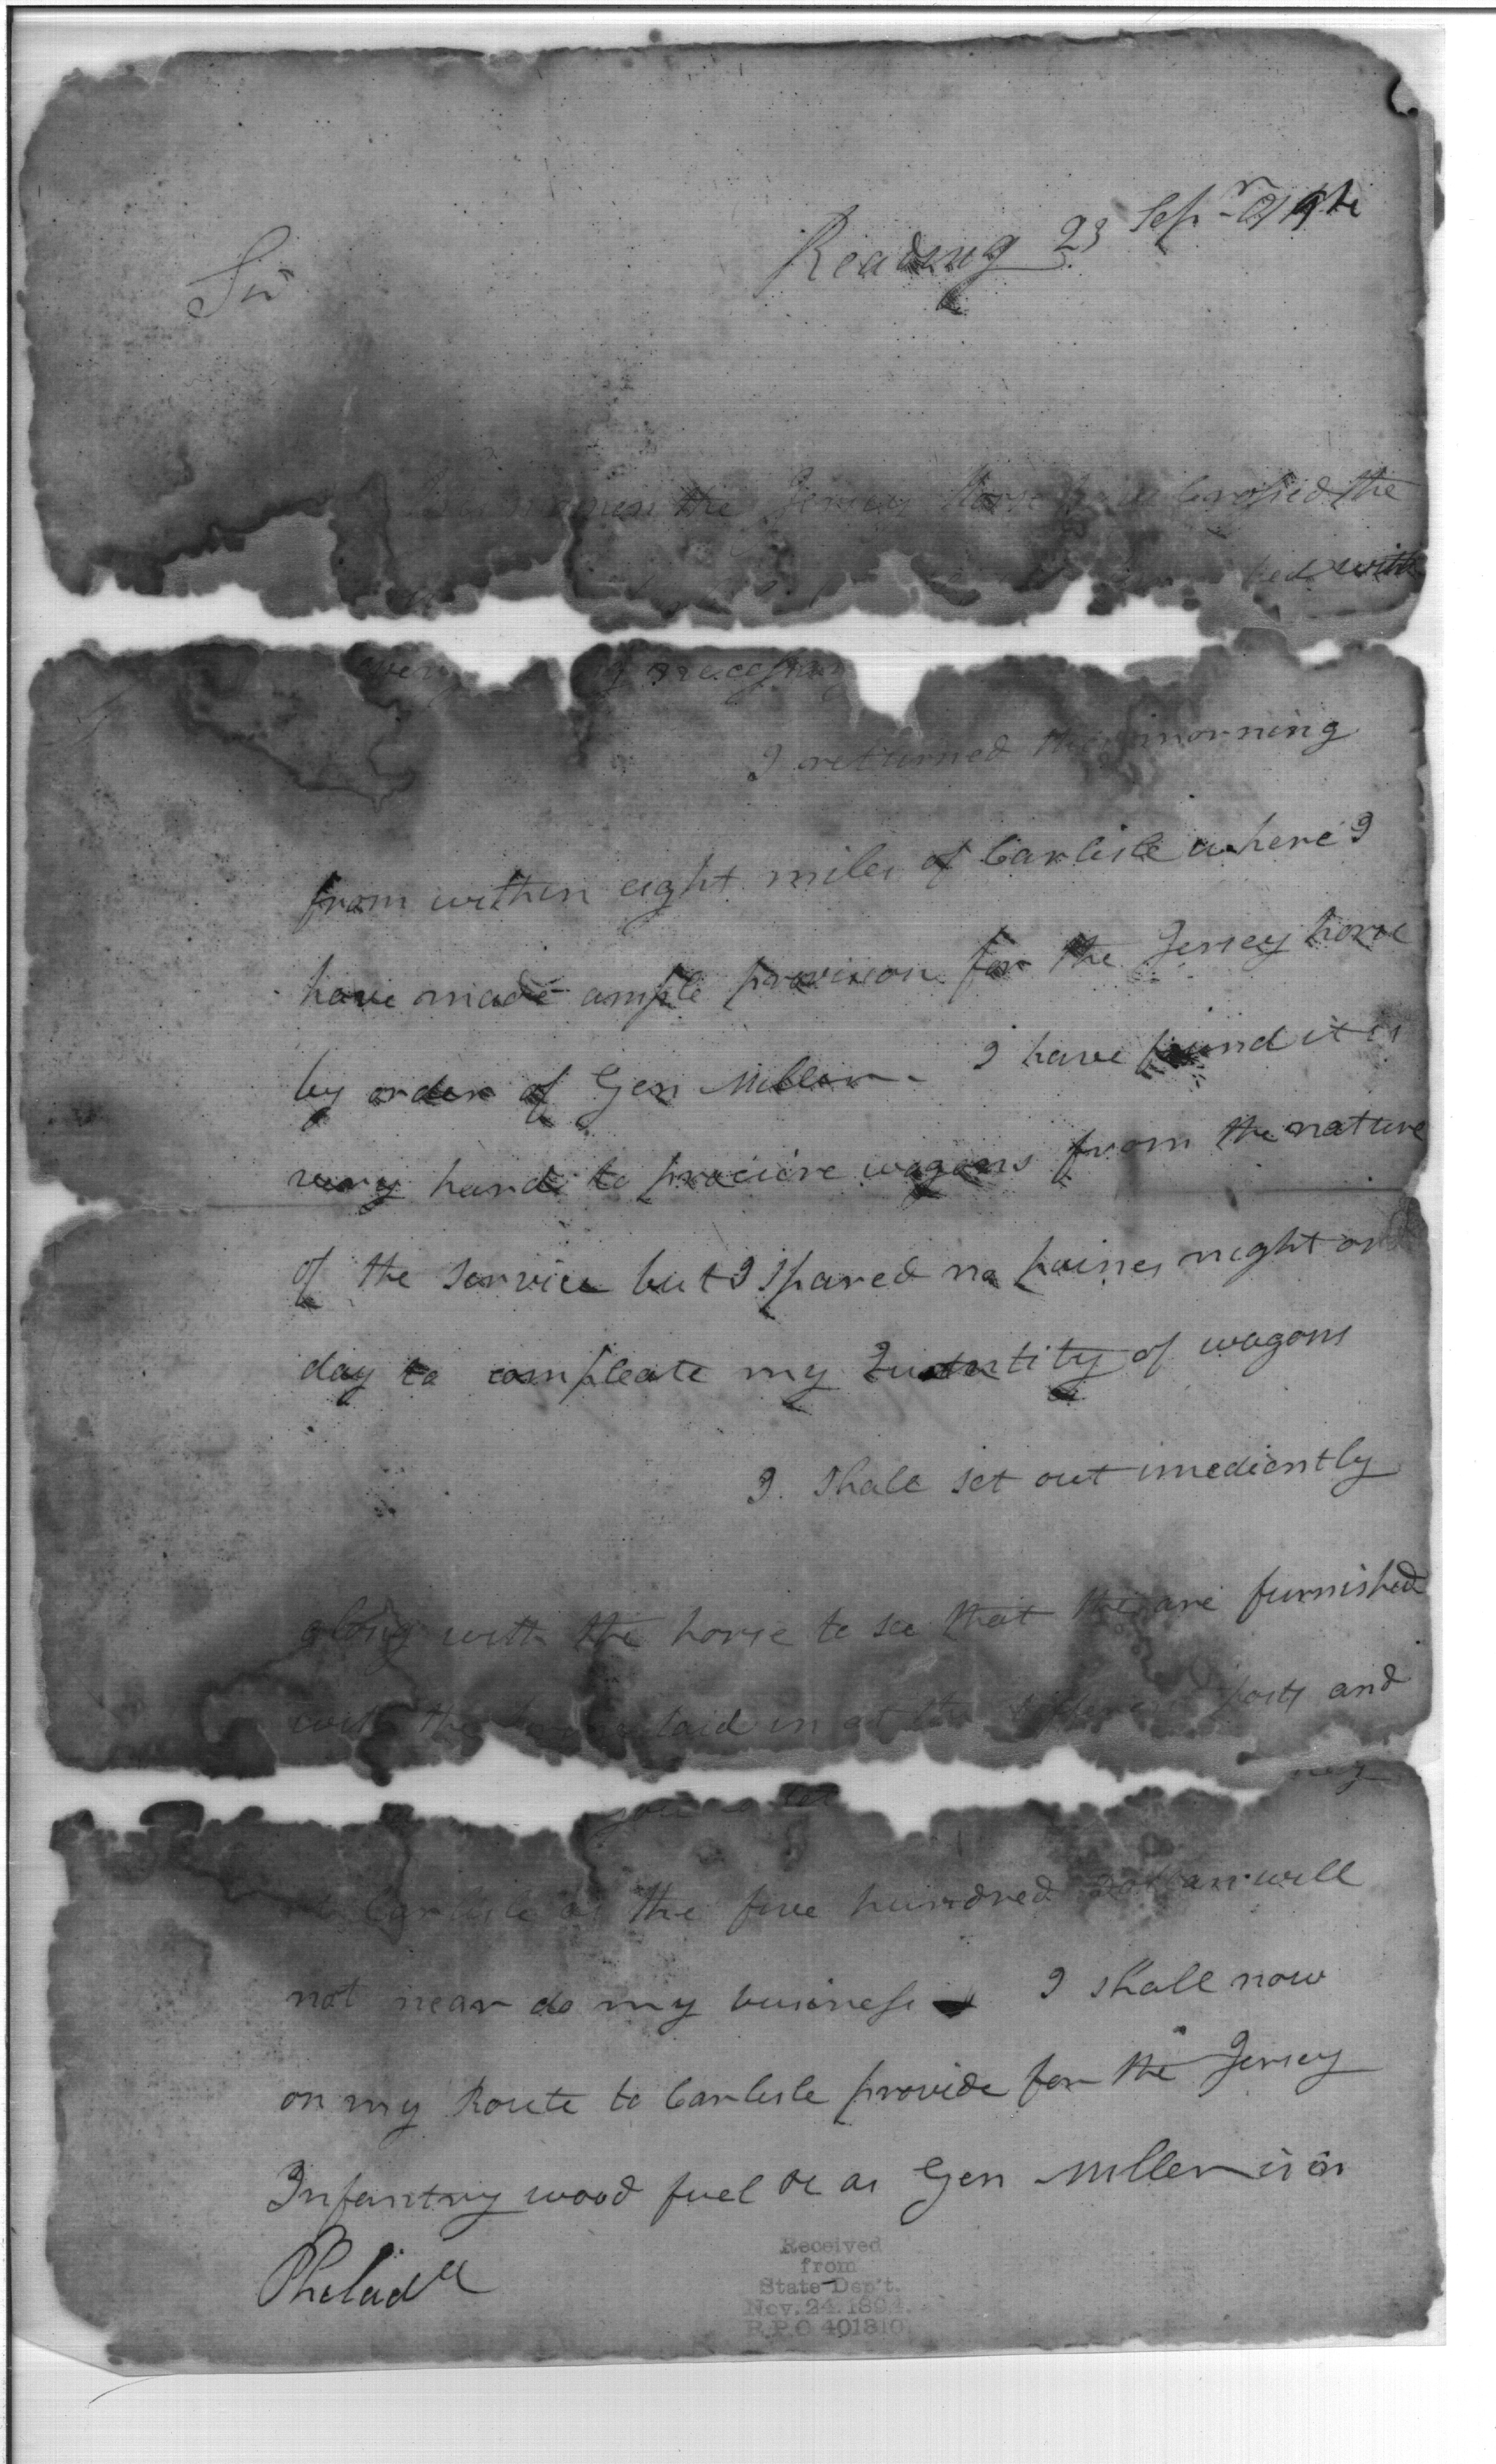 Reading 23 Sepr
Sir
the Jersey Horse have Crossed the
with
every necessary
I returned this morning
from within eight miles of Carlisle where I
have made ample provision for the Jersey horse
by order of Gen Miller - I have found it is
very hard to procure wagons from the nature
of the service but I spared no paines night or
day to compleate my Quantity of wagons
I shall set out imediently
along with the horse to see that they are furnished
with the laid in at the posts and
you
Carlisle as the five hundred Dollars will
not near do my business I shall now
on my Route to Carlisle provide for the Jersey
Infantry wood fuel &c as Gen Miller is in
Philada
Received
from
State Dep't.
Nov. 24. 1894.
R.P.O 401310